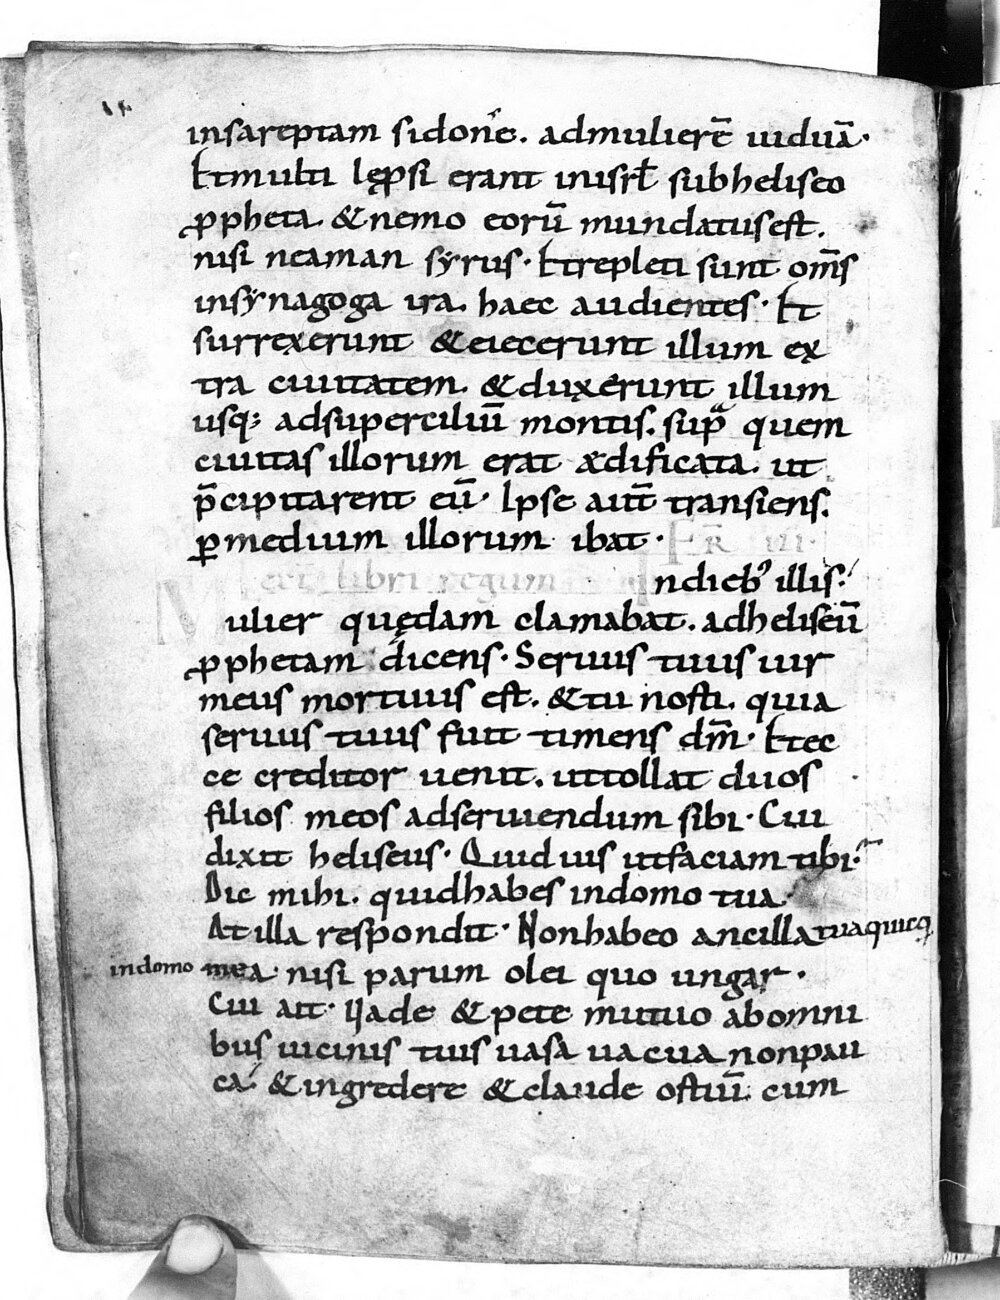 insareptam sidonie. admulierē uiduā.
Et multi lępsi erant inisrl̄ subheliseo
ꝓpheta. &nemo eorū mundatusest.
nisi neaman syrus. Et repleti sunt om̄s
insynagoga ira. haec audientes. Et
surrexerunt &eiecerunt illum ex
tra ciuitatem. &duxerunt illum
usq; adsuperciliū montis. supͣ quem
ciuitas illorum erat ædificata. ut
p̄cipitarent eū. Ipse aut̄ transiens.
ꝑmedium illorum ibat. FR̄ III.
lect libri regum Indieb; illis.
Mulier quędam clamabat. adheliseū
ꝓphetam dicens. Seruus tuus uir
meus mortuus est. &tu nosti. quia
seruus tuus fuit timens dm̄. Et ec
ce creditor uenit. uttollat duos
filios meos adseruiendum sibi. Cui
dixit heliseus. Quid uis utfaciam tibi.
Dic mihi. quidhabes indomo tua.
At illa respondit. Nonhabeo ancilla tua quicq̄
indomo mea. nisi parum olei quo ungar.
Cui ait. Uade & pete mutuo abomni
bus uicinis tuis uasa uacua nonpau
ca. & ingredere & claude ostiū. cum